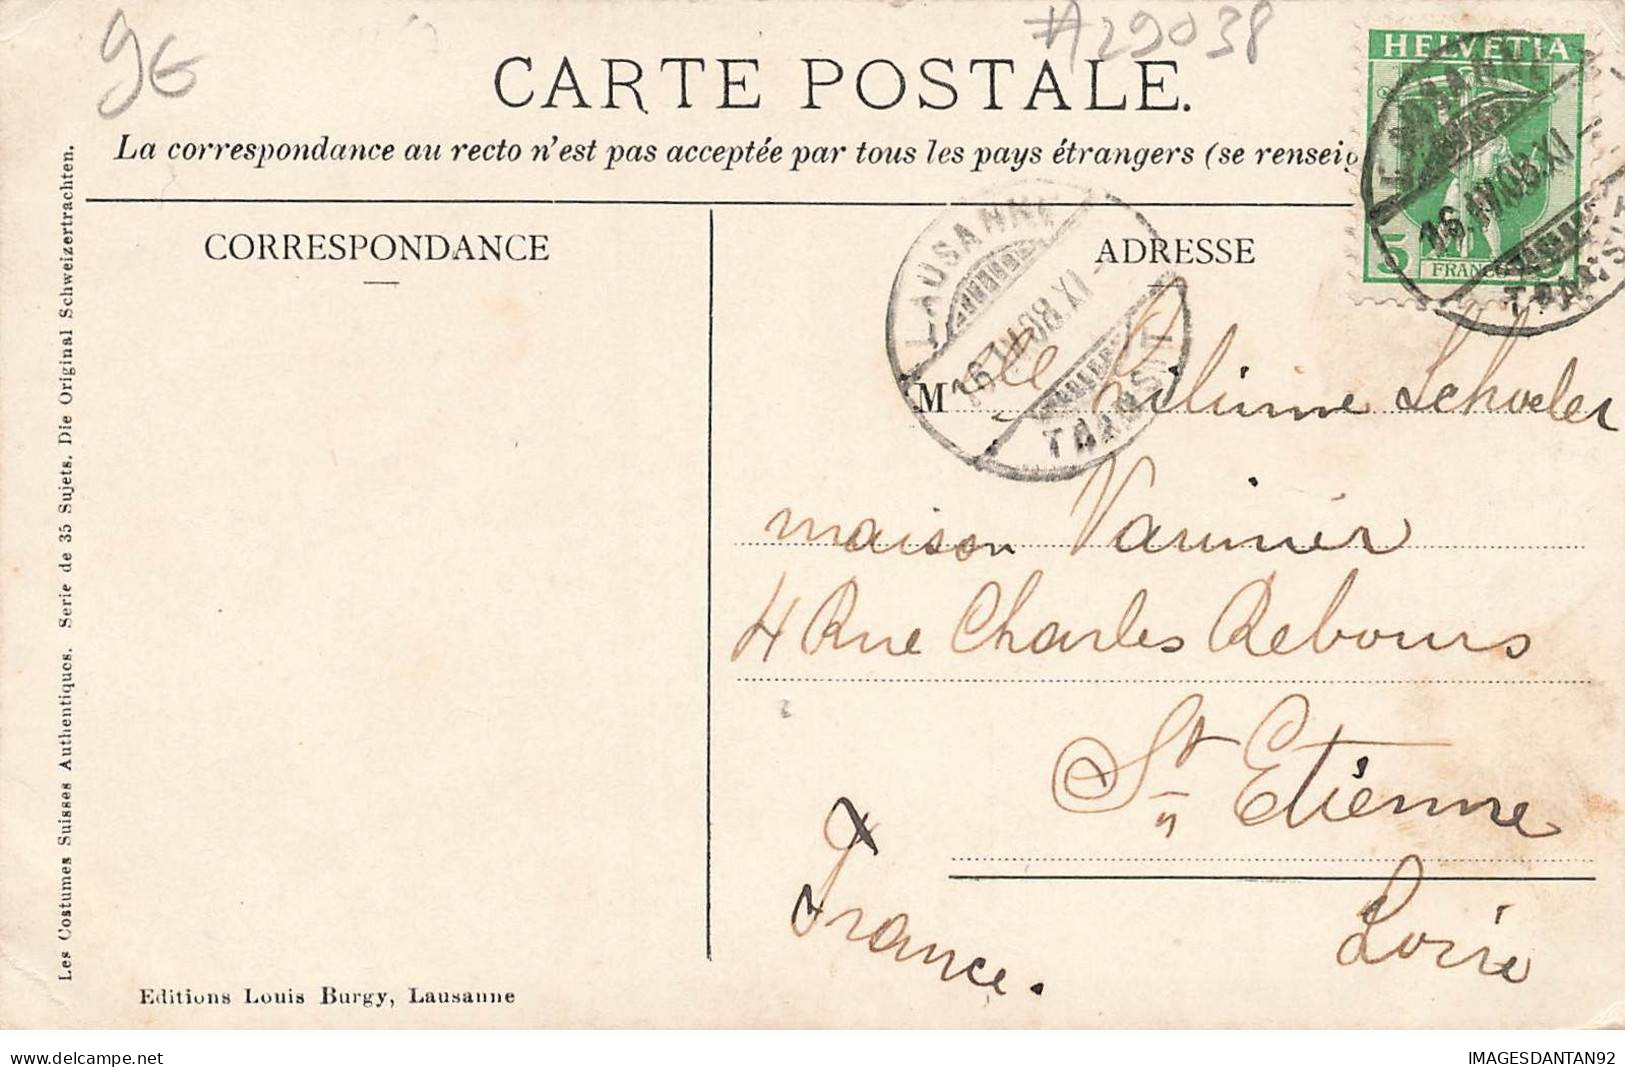 9€
#29038
CARTE POSTALE.
La correspondance au recto n'est pas acceptée par tous les pays étrangers (se renseig
HELVETIA
5
FRANCO
LAUSANNE
16.IV.08.XI
TRANSIT
CORRESPONDANCE
ADRESSE
LAUSANNE
16.IV.08.XI
TRANSIT
Mlle
maison Vaunier
4 Rue Charles Rebours
St Etienne
Loire
France.
Les Costumes Suisses Authentiques. Serie de 35 Sujets. Die Original Schweizertrachten.
Editions Louis Burgy, Lausanne
delcampe.net
IMAGESDANTAN92